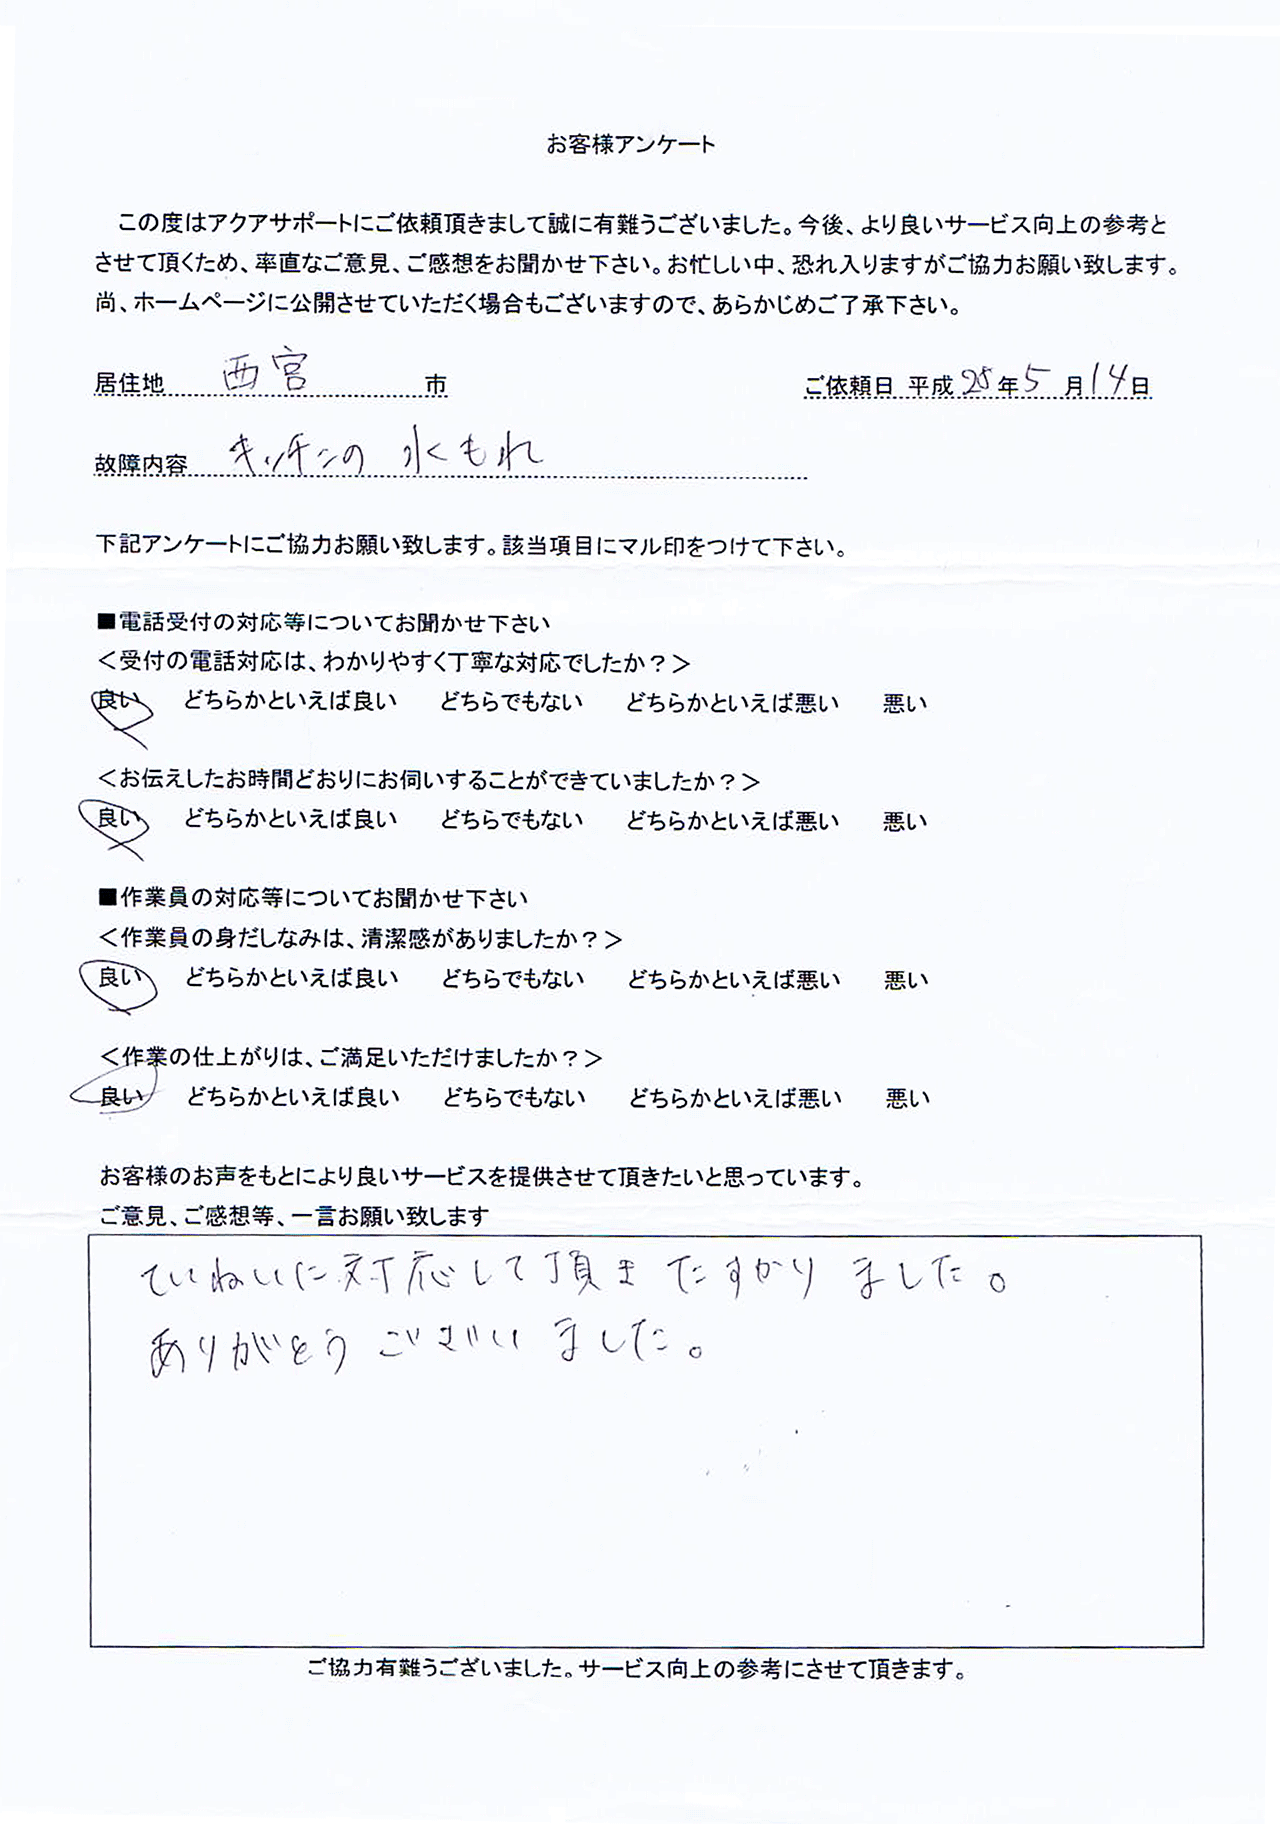 お客様アンケート
この度はアクアサポートにご依頼頂きまして誠に有難うございました。今後、より良いサービス向上の参考と
させて頂くため、率直なご意見、ご感想をお聞かせ下さい。お忙しい中、恐れ入りますがご協力お願い致します。
尚、ホームページに公開させていただく場合もございますので、あらかじめご了承下さい。
居住地 西宮 市 ご依頼日 平成 28 年 5 月 14 日
故障内容 キッチンの 水もれ
下記アンケートにご協力お願い致します。該当項目にマル印をつけて下さい。
■電話受付の対応等についてお聞かせ下さい
<受付の電話対応は、わかりやすく丁寧な対応でしたか?>
良い どちらかといえば良い どちらでもない どちらかといえば悪い 悪い
<お伝えしたお時間どおりにお伺いすることができていましたか?>
良い どちらかといえば良い どちらでもない どちらかといえば悪い 悪い
■作業員の対応等についてお聞かせ下さい
<作業員の身だしなみは、清潔感がありましたか?>
良い どちらかといえば良い どちらでもない どちらかといえば悪い 悪い
<作業の仕上がりは、ご満足いただけましたか?>
良い どちらかといえば良い どちらでもない どちらかといえば悪い 悪い
お客様のお声をもとにより良いサービスを提供させて頂きたいと思っています。
ご意見、ご感想等、一言お願い致します
ていねいに対応して頂き たすかり ました。
ありがとう ございました。
ご協力有難うございました。サービス向上の参考にさせて頂きます。